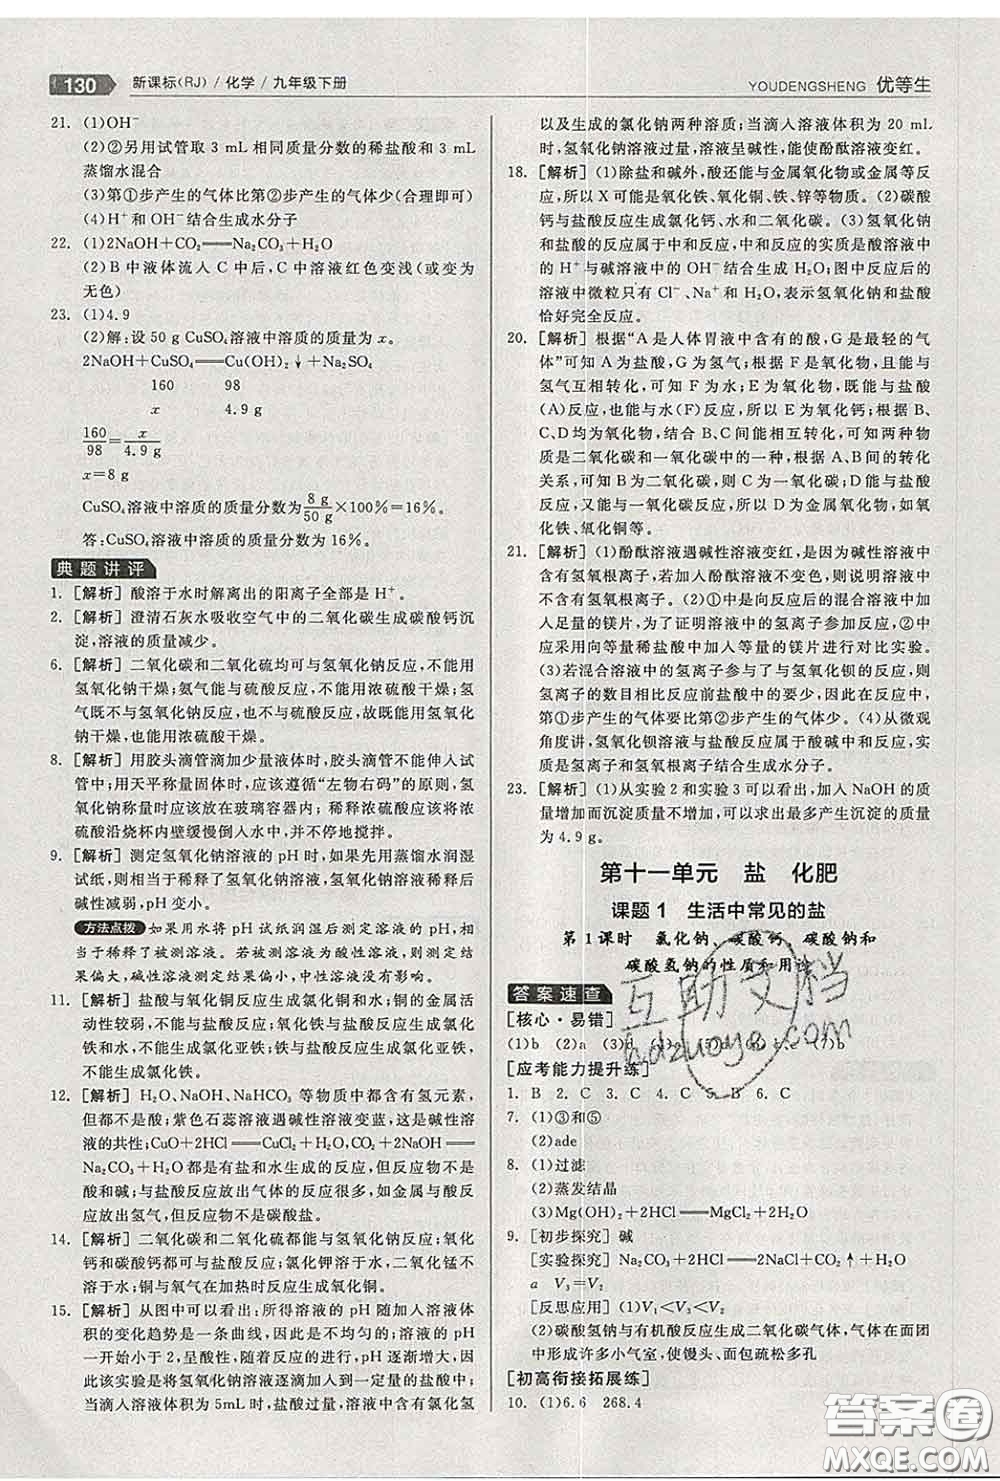 130 新课标(RJ) / 化学 / 九年级下册
YOUDENGSHENG 优等生
21. (1)OH⁻
(2)②另用试管取 3 mL 相同质量分数的稀盐酸和 3 mL
蒸馏水混合
(3)第①步产生的气体比第②步产生的气体少(合理即可)
(4)H⁺和 OH⁻结合生成水分子
22. (1)2NaOH+CO₂══Na₂CO₃+H₂O
(2)B 中液体流入 C 中后,C 中溶液红色变浅(或变为
无色)
23. (1)4.9
(2)解:设 50 g CuSO₄溶液中溶质的质量为 x。
2NaOH+CuSO₄══Cu(OH)₂↓+Na₂SO₄
160 98
x 4.9 g
160/98=x/4.9 g
x=8 g
CuSO₄溶液中溶质的质量分数为8 g/50 g×100%=16%。
答:CuSO₄溶液中溶质的质量分数为 16%。
典题讲评
1. [解析] 酸溶于水时解离出的阳离子全部是 H⁺。
2. [解析] 澄清石灰水吸收空气中的二氧化碳生成碳酸钙沉
淀,溶液的质量减少。
6. [解析] 二氧化碳和二氧化硫均可与氢氧化钠反应,不能用
氢氧化钠干燥;氨气能与硫酸反应,不能用浓硫酸干燥;氧
气既不与氢氧化钠反应,也不与硫酸反应,故既能用氢氧化
钠干燥,也能用浓硫酸干燥。
8. [解析] 用胶头滴管滴加少量液体时,胶头滴管不能伸入试
管中;用天平称量固体时,应该遵循“左物右码”的原则,氢
氧化钠称量时应该放在玻璃容器内; 稀释浓硫酸应该将浓
硫酸沿烧杯内壁缓慢倒入水中,并不停地搅拌。
9. [解析] 测定氢氧化钠溶液的 pH 时,如果先用蒸馏水润湿
试纸,则相当于稀释了氢氧化钠溶液,氢氧化钠溶液稀释后
碱性减弱,pH 变小。
方法点拨 如果用水将 pH 试纸润湿后测定溶液的 pH,则
稀释了被测溶液。若被测溶液为酸性或碱性,则测定结果
产生偏大,碱性溶液测定结果偏小,中性溶液没有影响。
11. [解析] 盐酸与氧化铜反应生成氯化铜和水;铜的金属活
动性较弱,不能与盐酸反应,不能生成氯化铜;铁与盐酸反
应生成氯化亚铁,不能生成氯化亚铁;铁与盐酸反应生成氯化亚铁,
不能生成氯化铁。
12. [解析] H₂O、NaOH、NaHCO₃等物质中都含有氢元素,
但都不是酸;紫色石蕊溶液遇碱性溶液变蓝,这是碱性溶
液的共性;CuO+2HCl══CuCl₂+H₂O,CO₂+2NaOH══
Na₂CO₃+H₂O都是有盐和水生成的反应,但反应物不是
酸和碱;与盐酸反应放出气体的反应很多,如金属与酸反
应放出氢气,但反应物不是碳酸盐。
14. [解析] 二氧化碳和二氧化硫都能与氢氧化钠反应;氧化
钙和碳酸钙都可与盐酸反应;氯化钾溶于水,二氧化锰不
溶于水;铜与氧气在加热时反应生成氧化铜。
15. [解析] 从图中可以看出:所得溶液的 pH 随加入溶液体
积的变化趋势是一条曲线,因此是不均匀的;溶液的 pH
一开始小于 2,呈酸性,随着反应的进行,pH 逐渐增大,因
此该实验是将氢氧化钠溶液逐滴加入到一定量的盐酸中;
当滴入溶液的体积为5mL时,溶液中含有剩余的氯化氢
以及生成的氯化钠两种溶质;当滴入溶液体积为 20 mL
时,氢氧化钠溶液过量,溶液呈碱性,能使酚酞溶液变红。
18. [解析] (1)除盐和碱外,酸还能与金属氧化物或金属等反
应,所以 X 可能是氧化铁、氧化铜、铁、锌等物质。(2)碳酸
钙与盐酸反应生成氯化钙、水和二氧化碳。(3)氢氧化钠
和盐酸的反应属于中和反应,中和反应的实质是酸溶液中
的 H⁺与碱溶液中的 OH⁻结合生成 H₂O;图中反应后的
溶液中微粒只有 Cl⁻、Na⁺和 H₂O,表示氢氧化钠和盐酸
恰好完全反应。
20. [解析] 根据“A 是人体胃液中含有的酸,G 是最轻的气
体”可知 A 为盐酸,G 为氢气;根据 F 是氧化物,且能与
氢气互相转化,可知 F 为水;E 为氧化物,既能与盐酸
(A)反应,也能与水(F)反应,所以 E 为氧化钙;根据 B、
C、D 为氧化物,结合 B、C 间能相互转化,可知两种物质
是二氧化碳和一氧化碳中的一种,结合 A、B 间的转化
关系,可知 B 为二氧化碳,C 为一氧化碳;D 能与盐酸
反应,又能与一氧化碳反应,所以 D 为金属氧化物,如氧
化铁、氧化铜等。
21. [解析] (1)酚酞溶液遇碱性溶液变红,是因为碱性溶液
中含有氢氧根离子;因为酚酞溶液不变色,所以说明溶液
中没有氢氧根离子。(2)①中是向反应后的混合溶液中加
入足量的镁片,为了证明溶液中氢离子的数目变少,②中
也应采用向等量稀盐酸中加入等量的镁片进行对比实验。
(3)若混合溶液中的氢离子参与了与氢氧化钡的反应,则
氢离子的数目相比反应前盐酸中的要少,因此在反应中,
第①步产生的气体要比第②步产生的气体少。(4)从微观
角度讲,氢氧化钡溶液与盐酸反应属于酸碱中和反应,实
质是氢离子和氢氧根离子结合生成水分子。
23. [解析] (1)从实验 2 和实验 3 可以看出,加入 NaOH 的质
量增加而沉淀质量没有增加,可以求出最多产生沉淀的质
量为 4.9 g。
第十一单元 盐 化肥
课题 1 生活中常见的盐
第 1 课时 氯化钠、碳酸钙、碳酸钠和
碳酸氢钠的性质和用途
答案速查
[核心·易错]
(1)b (2)a (3)d
[应考能力提升练]
1. B 2. C 3. C 4. B 5. B 6. C
7. (1)③和⑤
(2)ade
8. (1)过滤
(2)蒸发结晶
(3)Mg(OH)₂+2HCl══MgCl₂+2H₂O
9. [初步探究] 碱
[实验探究] Na₂CO₃+2HCl══2NaCl+CO₂↑+H₂O
a V₃=V₂
[反思应用] (1)V₁<V₃<V₂
(2)碳酸氢钠与有机酸反应生成二氧化碳气体,气体在面团
中形成许多小气室,使馒头、面包疏松多孔
[初高衔接拓展练]
10. (1)6.6 268.4
互助文档
hdzuoye.com
答案圈
MXQE.COM